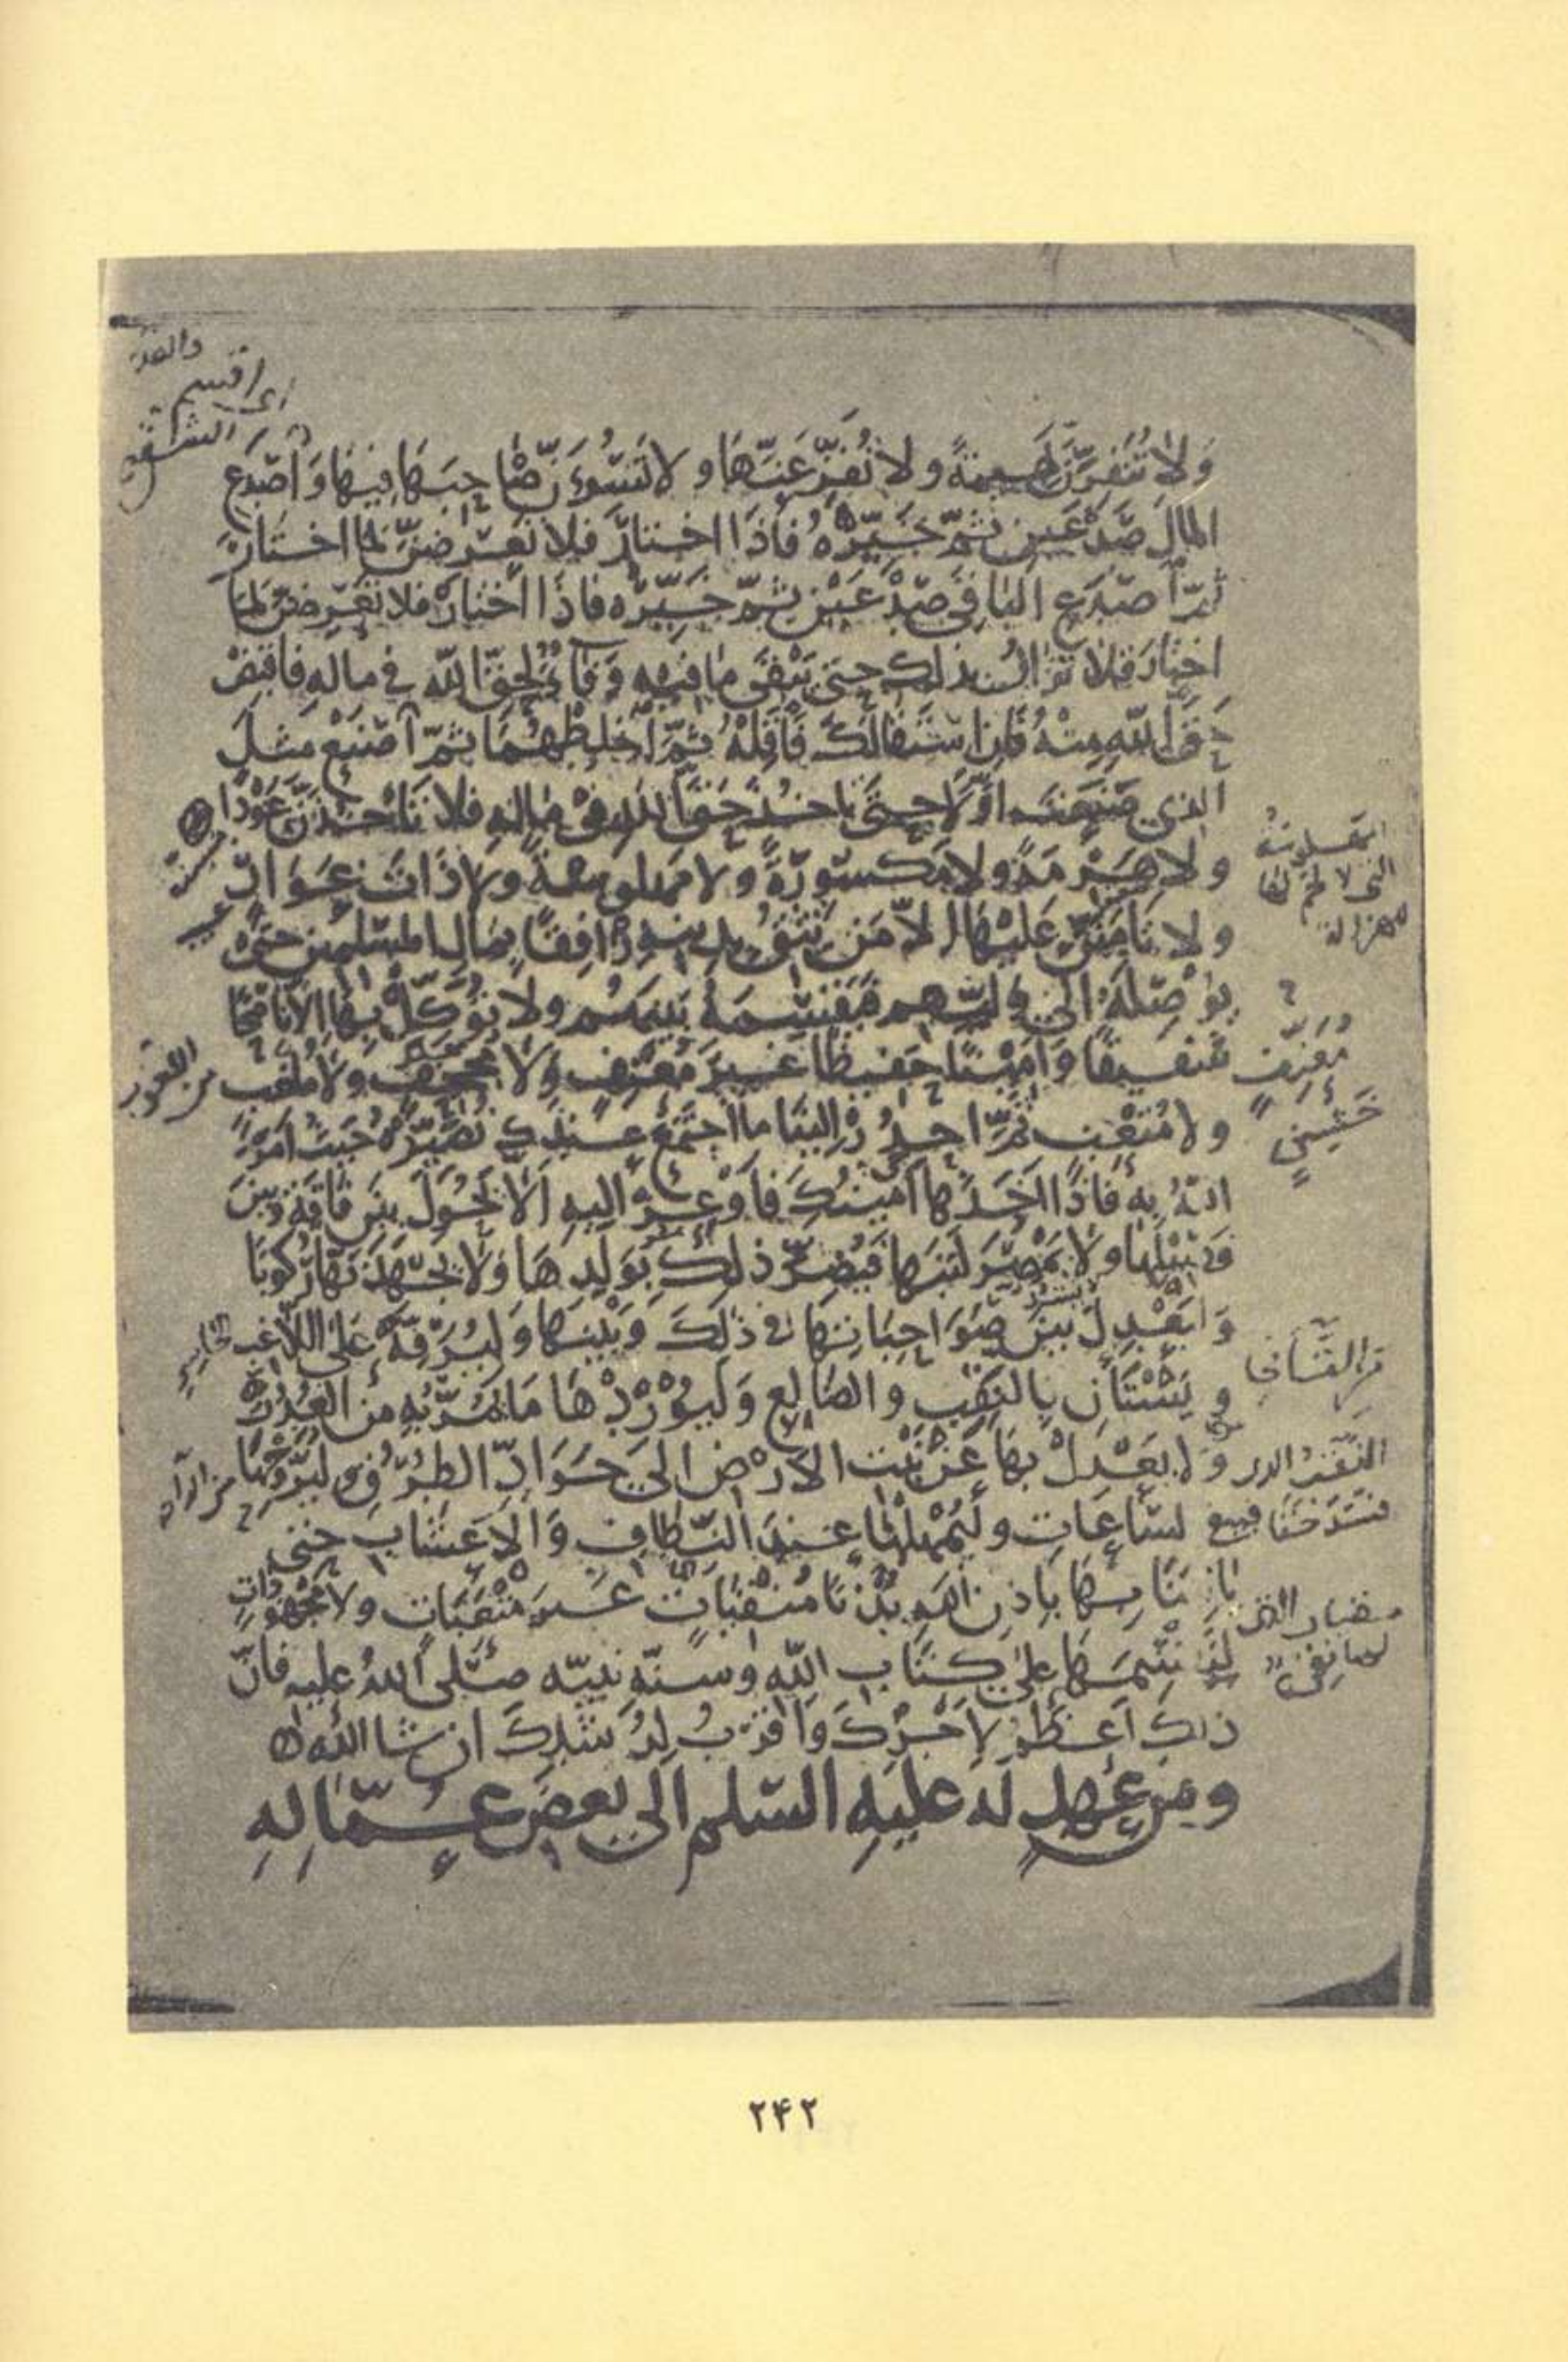 وَلَا تُنَفِّرَنَّ بَهِيمَةً وَلَا تُفْزِعَنَّهَا وَلَا تَسُوءَنَّ صَاحِبَهَا فِيهَا وَاصْدَعِ
المالَ صَدْعَيْنِ ثُمَّ خَيِّرْهُ فَاذَا اختارَ فلا تعرضنّ لما اختارَ
ثمّ اصدَعِ الباقي صَدْعَيْنِ ثمّ خَيِّرْه فاذا اختارَ فلا تعرّضنّ لما
اختارَ فلا تزال بذلك حتى يَبْقَى ما فيه وَفَآءٌ لِحَقّ الله في ماله فاقبِضْ
حَقَّ اللهِ مِنْهُ فَإِن اسْتَقَالَكَ فَأَقِلْهُ ثمّ اخلِطْهُمَا ثمّ اصنَعْ مثلَ
الذي صَنَعْتَ اوّلًا حتى تاخُذَ حَقَّ اللهِ فى مالِهِ فلا تَأخُذَنَّ عَوْدًا
ولا هَرِمَةً ولا مكسُورَةً ولا مهلوسةً ولا ذَاتَ عَوَارٍ
ولا تَأمَنَنَّ عَلَيْهَا الّا مَن تَثِقُ بدينه رافِقًا بمالِ المسلمين حَتّى
يُوَصِّلَهُ الى وليّهم فيَقْسِمَهُ بَيْنَهُم ولا تُوَكِّلْ بِهَا الّا نَاصِحًا
شفيقًا وَأمِينًا حَفِيظًا غيرَ مُعْنِفٍ وَلَا مُجْحِفٍ وَلَا مُلْغِبٍ
ولا مُتْعِبٍ ثُمَّ احدُرْ إلينَا ما اجتمَعَ عندك نُصَيِّرْهُ حيثُ امَرَ
اللهُ بِهِ فَاذَا اخَذَهَا امِينُكَ فَأَوْعِزْ إليهِ الّا يَحُولَ بينَ نَاقَةٍ وبينَ
فَصِيلِهَا ولا يَمْصُرَ لَبَنَهَا فَيُضِرَّ ذلك بِوَلَدِهَا وَلَا يَجْهَدَنَّهَا رُكُوبًا
وَليَعْدِلْ بينَ صَوَاحِبَاتِهَا في ذلِكَ وَبَيْنَهَا وَلْيُرَفِّهْ عَلَى اللَّاغِبِ
وليَسْتَأْنِ بِالنَّقِبِ والظالِعِ وَلْيُورِدْهَا مَا تَمُرُّ بِهِ مِنَ الغُدُرِ
وَلا يَعْدِلْ بِهَا عَنْ نَبْتِ الأرْضِ الى جَوَادِّ الطرُقِ وليُرَوِّحْهَا
في السّاعَاتِ وليُمْهِلْهَا عِنْدَ النِّطَافِ وَالْأَعْشَابِ حتى
تاتِيَنَا بِهَا باذنِ اللهِ بُدَّنًا مُنْقِيَاتٍ غيرَ مُتْعَبَاتٍ ولا مَجْهُودَاتٍ
لِنَقْسِمَهَا على كتابِ اللهِ وسنّة نبيّه صلّى اللهُ عليه فانّ
ذلكَ أعظمُ لِأَجْرِكَ وَأَقْرَبُ لِرُشْدِكَ ان شا الله
ومن عهدٍ له عليه السّلم الى بعضِ عُمّالِهِ
۲۴۲